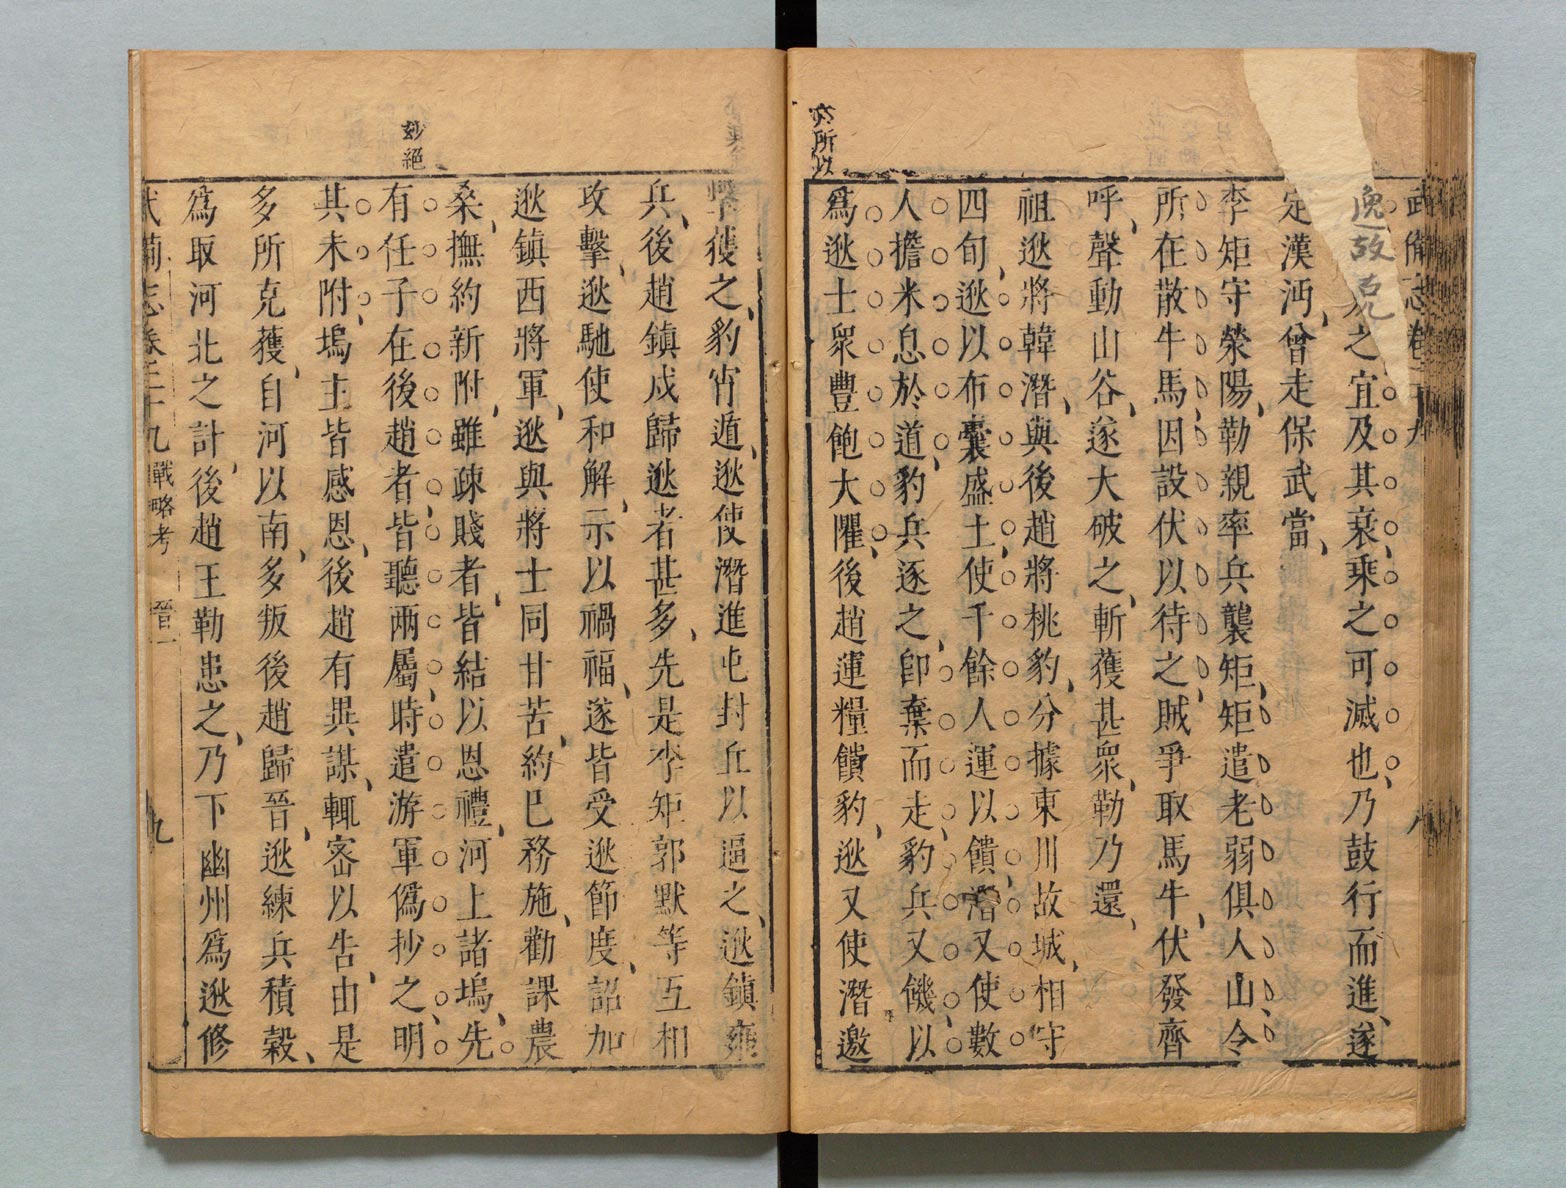 武備志卷二十九 八
逸故克之宜及其衰乘之可滅也乃鼓行而進遂
定漢沔曾走保武當
李矩守滎陽勒親率兵襲矩矩遣老弱俱入山令
所在散牛馬因設伏以待之賊爭取馬牛伏發齊
呼聲動山谷遂大破之斬獲甚衆勒乃還
祖逖將韓潛與後趙將桃豹分據東川故城相守
四旬逖以布囊盛土使千餘人運以饋潛又使數
人擔米息於道豹兵逐之卽棄而走豹兵又饑以
爲逖士衆豐飽大懼後趙運糧饋豹逖又使潛邀
所以
擊獲之豹宵遁逖使潛進屯封丘以逼之逖鎮雍
兵後趙鎮戍歸逖者甚多先是李矩郭默等互相
攻擊逖馳使和解示以禍福遂皆受逖節度詔加
逖鎮西將軍逖與將士同甘苦約己務施勸課農
桑撫約新附雖疎賤者皆結以恩禮河上諸塢先
妙絕
有任子在後趙者皆聽兩屬時遣游軍僞抄之明
其未附塢主皆感恩後趙有異謀輒密以告由是
多所克獲自河以南多叛後趙歸晉逖練兵積穀
爲取河北之計後趙王勒患之乃下幽州爲逖修
武備志卷二十九 戰略考 晉一 九